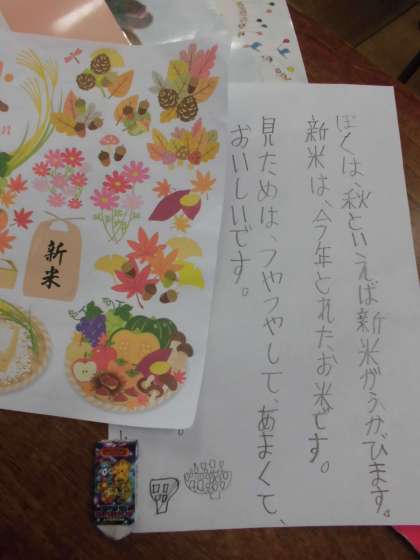 ぼくは、秋といえば新米がうかびます。
新米は、今年とれたお米です。
見ためは、つやつやして、あまくて、
おいしいです。
新米